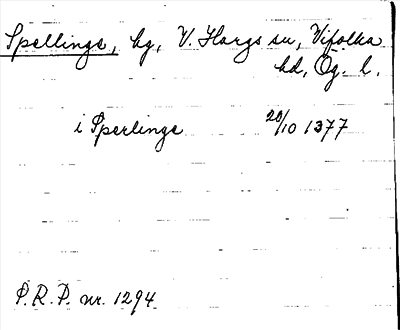 Spellinge, by, V. Hargs sn, Vifolka
hd, Ög. l.
i Sperlinge 20/10 1377
P.R.P. nr. 1294